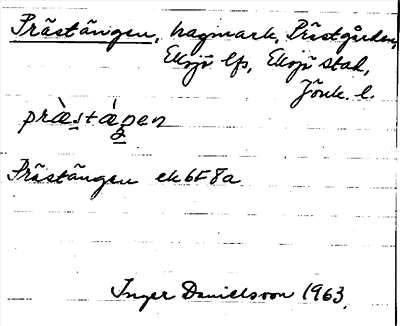 Prästängen, hagmark, Prästgården,
Eksjö lfs, Eksjö stad,
Jönk. l.
præ̀stǽŋen
Prästängen ek 6F8a
Inger Danielsson 1963.